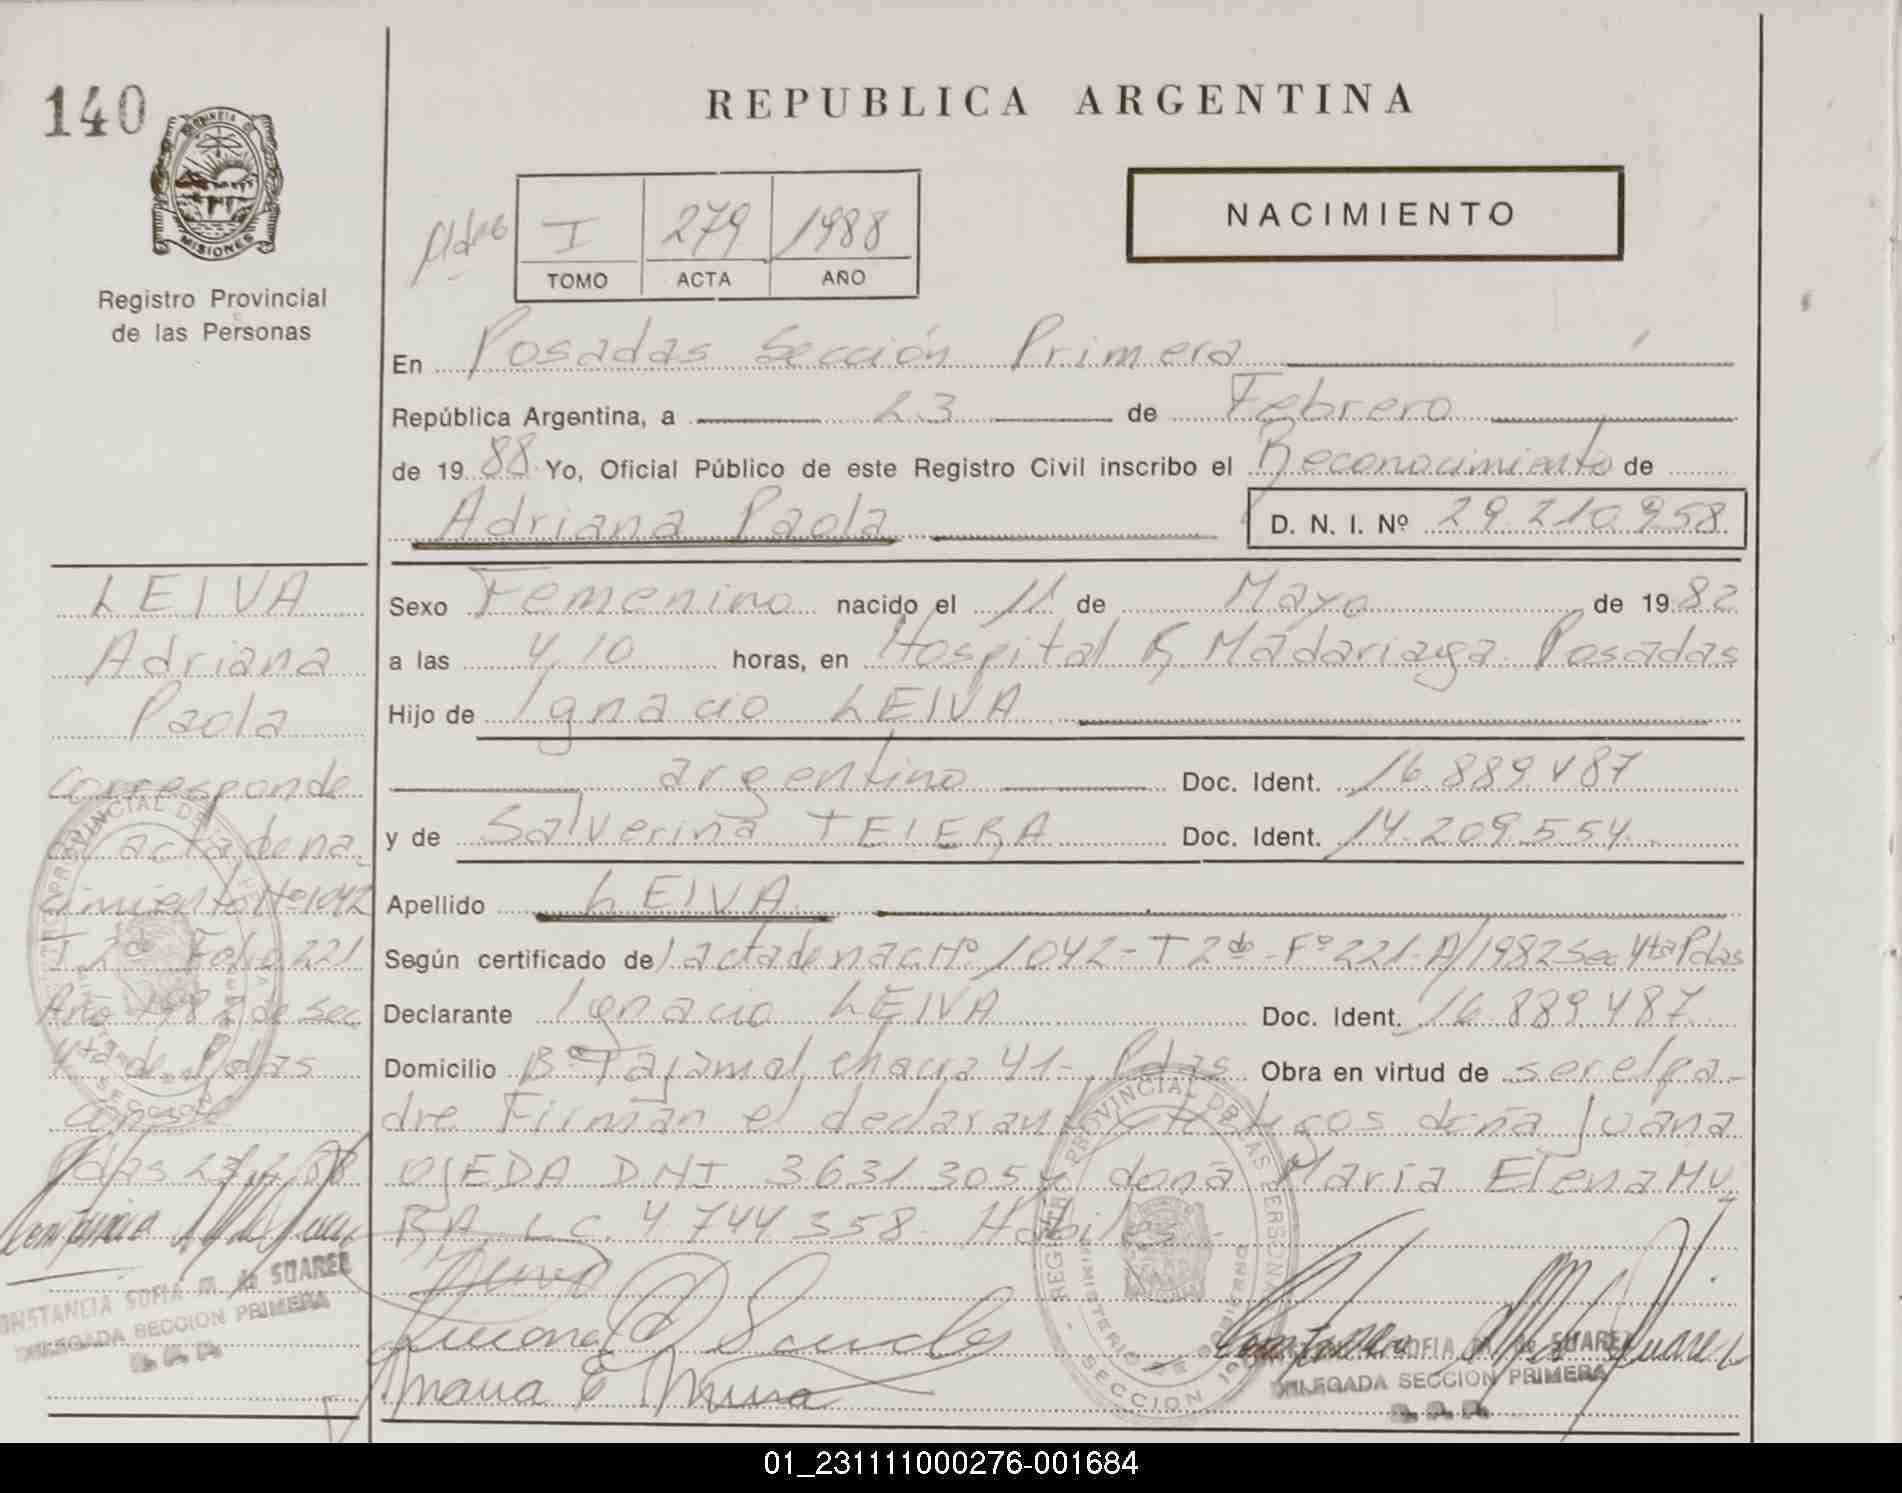 140
PROVINCIA DE
MISIONES
Registro Provincial
de las Personas
REPUBLICA ARGENTINA
Pdas I 279 1988
TOMO ACTA AÑO
NACIMIENTO
En Posadas Sección Primera
República Argentina, a 23 de Febrero
de 1988 Yo, Oficial Público de este Registro Civil inscribo el Reconocimiento de
Adriana Paola D. N. I. Nº 29.210.958
Sexo Femenino nacido el 11 de Mayo de 1982
a las 4,10 horas, en Hospital R. Madariaga Posadas
Hijo de Ignacio LEIVA
argentino Doc. Ident. 16.889.487
y de Salverina Doc. Ident. 14.209.554
Apellido LEIVA
Según certificado de acta de nac Nº 1042-T 2do-Fº 221-A/1982 Sec 4ta Pdas
Declarante Ignacio LEIVA Doc. Ident. 16.889.487
Domicilio Bº chacra 41- Pdas Obra en virtud de ser el pa-
dre Firman el declarante y testigos doña Juana
OJEDA DNI 3.631.305 y doña María Elena MU
RA LC. 4.744.358-
LEIVA
Adriana
Paola
corresponde
al acta de na-
cimiento Nº 1042
T 2do Folio 221
Año 1982 de Sec
4ta de Pdas
Pdas 23/2/88
CONSTANCIA SOFIA M. de SUAREZ
DELEGADA SECCION PRIMERA
R. P. P.
Maria E Mura
REGISTRO PROVINCIAL DE LAS PERSONAS
MINISTERIO DE GOBIERNO
SECCION
SOFIA M. de SUAREZ
DELEGADA SECCION PRIMERA
R. P. P.
01_231111000276-001684